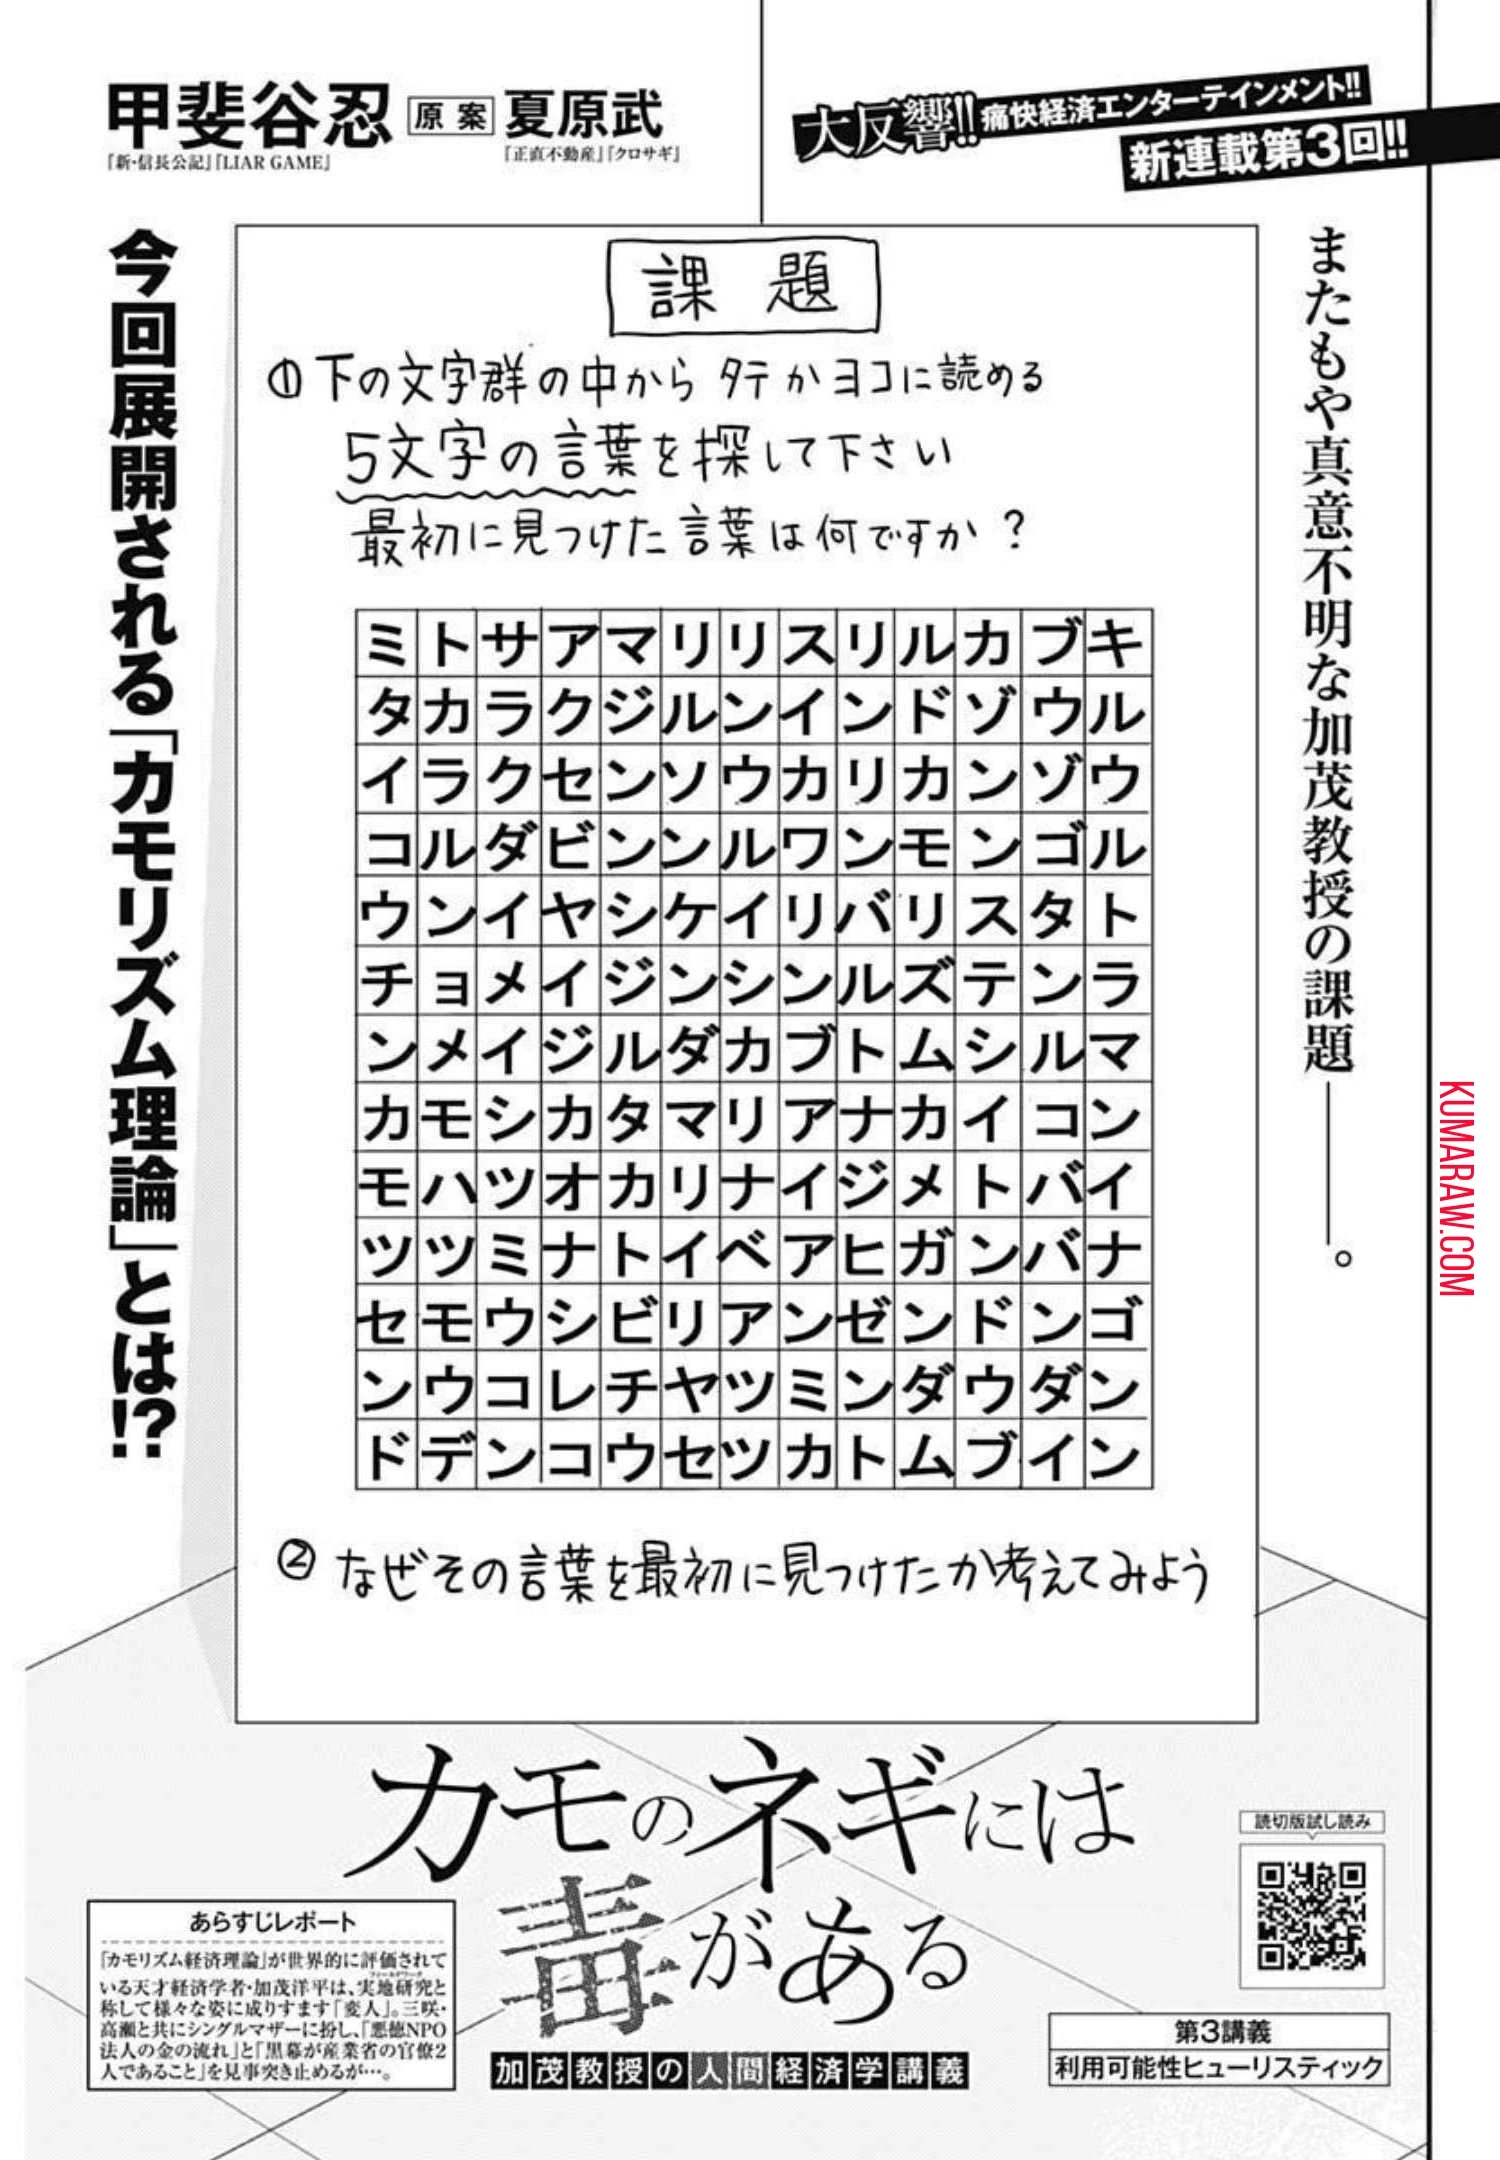 大反響!! 痛快経済エンターテインメント!!
新連載第3回!!
甲斐谷忍 原案 夏原武
『新・信長公記』『LIAR GAME』 『正直不動産』『クロサギ』
またもや真意不明な加茂教授の課題――。
課題
①下の文字群の中からタテかヨコに読める
5文字の言葉を探して下さい
最初に見つけた言葉は何ですか?
ミトサアマリリスリルカブキ
タカラクジルンインドゾウル
イラクセンソウカリカンゾウ
コルダビンンルワンモンゴル
ウンイヤシケイリバリスタト
チョメイジンシンルズテンラ
ンメイジルダカブトムシルマ
カモシカタマリアナカイコン
モハツオカリナイジメトバイ
ツツミナトイベアヒガンバナ
セモウシビリアンゼンドンゴ
ンウコレチヤツミンダウダン
ドデンコウセツカトムブイン
②なぜその言葉を最初に見つけたか考えてみよう
今回展開される「カモリズム理論」とは!?
KUMARAW.COM
カモのネギには
毒がある
加茂教授の人間経済学講義
読切版試し読み
第3講義
利用可能性ヒューリスティック
あらすじレポート
「カモリズム経済理論」が世界的に評価されて
いる天才経済学者・加茂洋平は、実地研究と
称して様々な姿に成りすます「変人」。三咲・
高瀬と共にシングルマザーに扮し、「悪徳NPO
法人の金の流れ」と「黒幕が産業省の官僚2
人であること」を見事突き止めるが…。